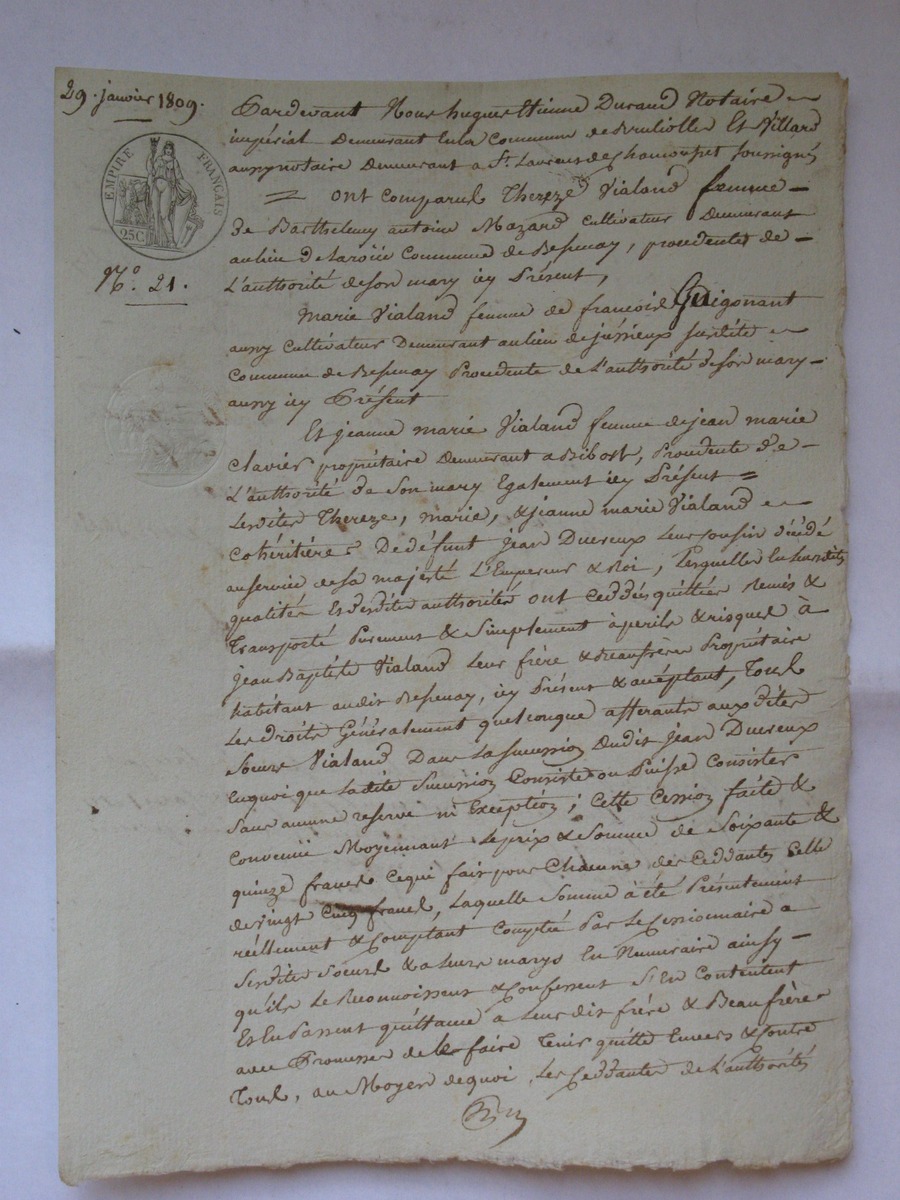 29. janvier 1809.
EMPIRE FRANÇAIS
25C
N.° 21.
Pardevant Nous hugues Etienne Durand Notaire
impérial Demeurant en la Commune de Brullioles Et Villard
aussy notaire Demeurant a St. Laurent de Chamousset soussignés
= ont comparus Thereze Vialand femme
de Barthelemy antoine Mazard Cultivateur Demeurant
au lieu de Commune de Bessenay, procedentes de
L'authorité de son mary icy Présent,
Marie Vialand femme de francois Guigonant
aussy Cultivateur Demeurant au lieu de jussieux susdite
Commune de Bessenay Procedente de L'authorité de son mary
aussy icy Présent
Et jeanne marie Vialand femme de jean marie
Clavier propriétaire Demeurant a Bibost, Procedente de
L'authorité de son mary Egalement icy Présent =
Lesdites Thereze, marie, & jeanne marie Vialand
Cohéritières De défunt jean Ducreux Leur cousin décédé
au service de sa majesté L'Empereur & Roi, Lesquelles En susdites
qualités Et desdites authorités ont Ceddés quittées remis &
Transporté Purement & Simplement à perils & risques à
jean Baptiste Vialand Leur frère & Beaufrère Propriétaire
habitant audit Bessenay, icy Présent & acceptant, Tous
Les droits Généralement quelconque afferants auxdites
Soeurs Vialand Dans La succession dudit jean Ducreux
En quoi que Ladite Succession Consiste ou Puisse Consister
Sans aucune reserve ni Exception; Cette Cession faite &
Convenüe Moyennant Le prix & Somme de Soixante &
quinze francs Ce qui fait pour Chacune des Ceddantes Celle
de vingt Cinq francs, Laquelle Somme à été Présentement
réellement & Comptant Comptée Par Le Cessionnaire a
Sesdites Soeurs & a Leurs marys En Numeraire ainsy
qu'ils Le Reconnoissent & Confessent S'En Contentent
Et En Passent quittance a Leur dit frère & Beaufrère
avec Promesse de Le faire Tenir quitte Envers & Contre
Tous, au Moyen de quoi Les Ceddantes de L'authorités